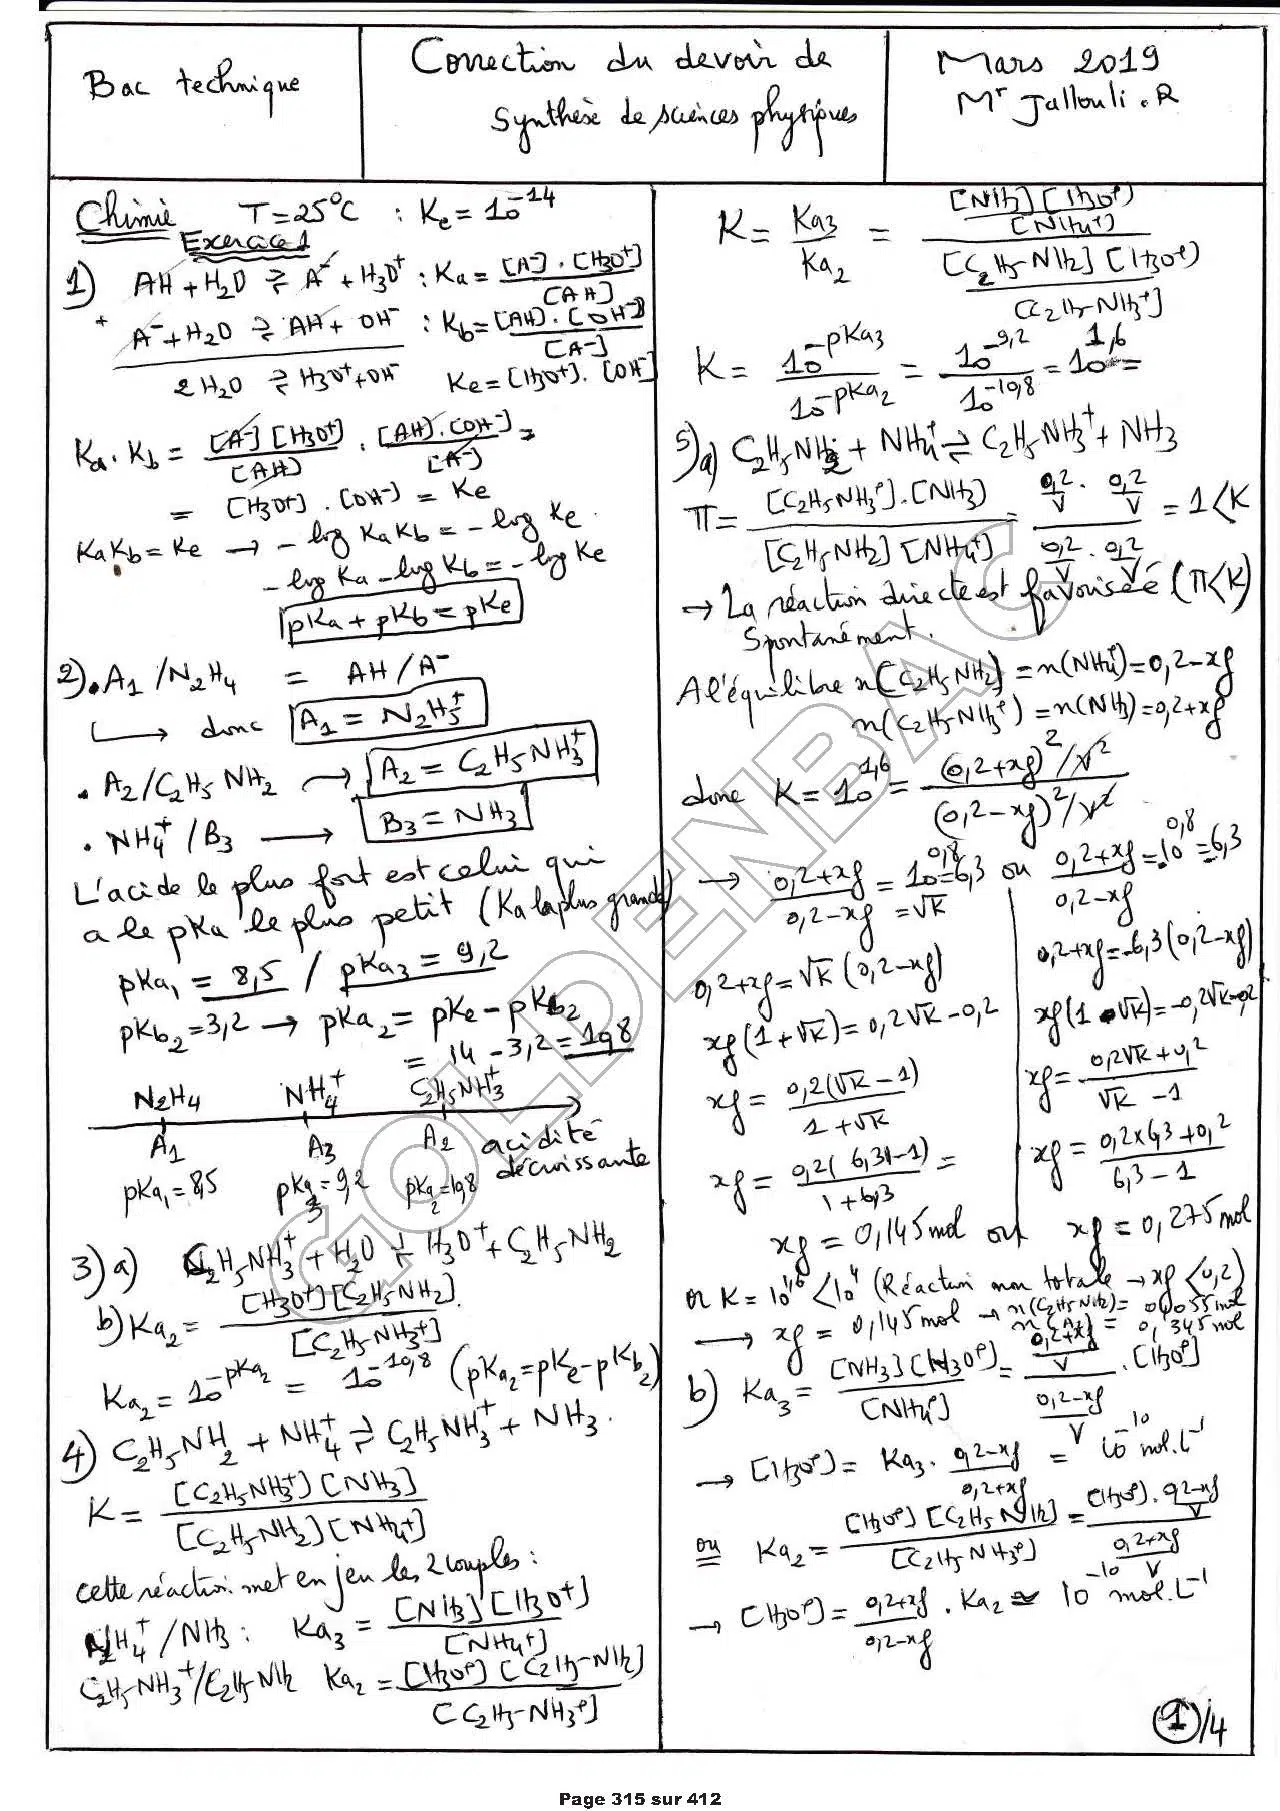 Bac technique
Correction du devoir de
Synthèse de sciences physiques
Mars 2019
Mr Jallouli.R
Chimie T=25°C : Ke = 10^-14
Exercice 1
1) AH + H2O ⇌ A^- + H3O^+ : Ka = [A^-].[H3O^+] / [AH]
+ A^- + H2O ⇌ AH + OH^- : Kb = [AH].[OH^-] / [A^-]
2H2O ⇌ H3O^+ + OH^- Ke = [H3O^+].[OH^-]
Ka.Kb = [A^-][H3O^+] / [AH] . [AH].[OH^-] / [A^-] =
= [H3O^+].[OH^-] = Ke
KaKb = Ke → -log KaKb = -log Ke
-log Ka - log Kb = -log Ke
pKa + pKb = pKe
2). A1/N2H4 = AH/A^-
↳ donc A1 = N2H5^+
. A2/C2H5NH2 → A2 = C2H5NH3^+
. NH4^+/B3 → B3 = NH3
L'acide le plus fort est celui qui
a le pKa le plus petit (Ka la plus grande)
pKa1 = 8,5 / pKa3 = 9,2
pKb2 = 3,2 → pKa2 = pKe - pKb2
= 14 - 3,2 = 10,8
N2H4 NH4^+ C2H5NH3^+
A1 A3 A2 acidité
décroissante
pKa1 = 8,5 pKa3 = 9,2 pKa2 = 10,8
3) a) C2H5NH3^+ + H2O ⇌ H3O^+ + C2H5NH2
b) Ka2 = [H3O^+][C2H5NH2] / [C2H5-NH3^+]
Ka2 = 10^-pKa2 = 10^-10,8 (pKa2 = pKe - pKb2)
4) C2H5NH2 + NH4^+ ⇌ C2H5NH3^+ + NH3.
K = [C2H5NH3^+][NH3] / [C2H5-NH2][NH4^+]
cette réaction met en jeu les 2 couples :
NH4^+/NH3 : Ka3 = [NH3][H3O^+] / [NH4^+]
C2H5-NH3^+/C2H5-NH2 Ka2 = [H3O^+][C2H5-NH2] / [C2H5-NH3^+]
K = Ka3 / Ka2 = [NH3][H3O^+] / [NH4^+] / [C2H5-NH2][H3O^+] / [C2H5-NH3^+]
K = 10^-pKa3 / 10^-pKa2 = 10^-9,2 / 10^-10,8 = 10^1,6 =
5) a) C2H5NH2 + NH4^+ ⇌ C2H5NH3^+ + NH3
π = [C2H5NH3^+].[NH3] / [C2H5NH2][NH4^+] = 0,2/V . 0,2/V / 0,2/V . 0,2/V = 1 < K
→ La réaction directe est favorisée (π<K)
Spontanément.
A l'équilibre n(C2H5NH2) = n(NH4^+) = 0,2-xf
n(C2H5-NH3^+) = n(NH3) = 0,2+xf
donc K = 10^1,6 = (0,2+xf)^2/V^2 / (0,2-xf)^2/V^2
→ 0,2+xf / 0,2-xf = 10^0,8 = 6,3 = √K ou 0,2+xf / 0,2-xf = -10^0,8 = -6,3
0,2+xf = √K (0,2-xf)
xf(1+√K) = 0,2√K - 0,2
xf = 0,2(√K - 1) / 1+√K
xf = 0,2(6,31-1) / 1+6,3 =
0,2+xf = -6,3(0,2-xf)
xf(1-√K) = -0,2√K-0,2
xf = 0,2√K+0,2 / √K - 1
xf = 0,2×6,3+0,2 / 6,3-1
xf = 0,145 mol ou xf = 0,275 mol
or K = 10^1,6 < 10^4 (Réaction non totale → xf < 0,2)
→ xf = 0,145 mol → n(C2H5NH2) = 0,055 mol
n(A2) = 0,345 mol
b) Ka3 = [NH3][H3O^+] / [NH4^+] = 0,2+xf/V . [H3O^+] / 0,2-xf/V
→ [H3O^+] = Ka3 . 0,2-xf / 0,2+xf = 10^-10 mol.L^-1
ou Ka2 = [H3O^+][C2H5NH2] / [C2H5NH3^+] = [H3O^+]. 0,2-xf/V / 0,2+xf/V
→ [H3O^+] = 0,2+xf / 0,2-xf . Ka2 ≈ 10^-10 mol.L^-1
1/4
GOLDENBAC
Page 315 sur 412